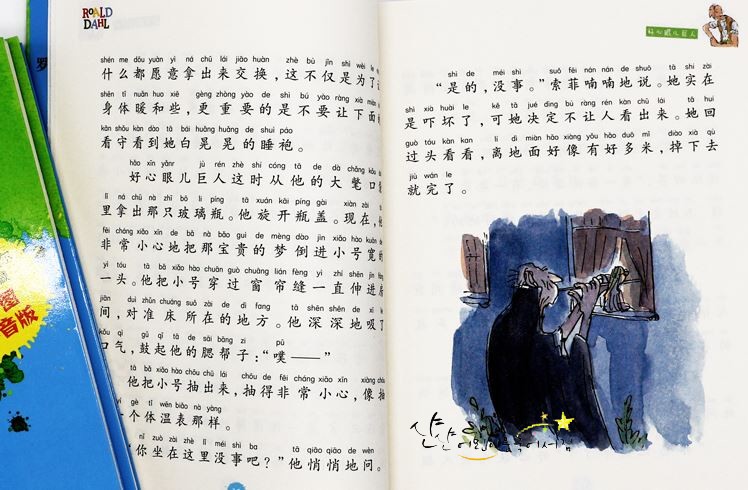 ROALD
DAHL
shén me dōu yuàn yì ná chū lái jiāo huàn zhè bù jǐn shì wèi le
什么都愿意拿出来交换，这不仅是为了
shēn tǐ nuǎn huo xiē gèng zhòng yào de shì bú yào ràng xià
身体暖和些，更重要的是不要让下面
kān shǒu kàn dào tā bái huǎng huǎng de shuì páo
看守看到她白晃晃的睡袍。
hǎo xīn yǎnr jù rén zhè shí cóng tā de dà chǎng
好心眼儿巨人这时从他的大氅口
lǐ ná chū nà zhī bō li píng tā xuán kāi píng gài xiàn zài
里拿出那只玻璃瓶。他旋开瓶盖。现在，
fēi cháng xiǎo xīn de bǎ nà bǎo guì de mèng dào jìn xiǎo hào kuān
非常小心地把那宝贵的梦倒进小号宽
yì tóu tā bǎ xiǎo hào chuān guò chuāng lián fèng yì zhí shēn jìn
一头。他把小号穿过窗帘缝一直伸进
jiān duì zhǔn chuáng suǒ zài de dì fang tā shēn shēn de xī le
间，对准床所在的地方。他深深地吸了
kǒu qì gǔ qǐ tā de sāi bāng zi pū
口气，鼓起他的腮帮子：“噗——”
tā bǎ xiǎo hào chōu chū lái chōu de fēi cháng xiǎo xīn xiàng
他把小号抽出来，抽得非常小心，像
yí gè tǐ wēn biǎo nà yàng
一个体温表那样。
nǐ zuò zài zhè lǐ méi shì ba tā qiāo qiāo de wèn
你坐在这里没事吧？”他悄悄地问。
音版
好心眼儿巨人
shì de méi shì suǒ fēi nán nán de shuō tā shí zài
“是的，没事。”索菲喃喃地说。她实在
shì xià huài le kě tā jué dìng bú ràng rén kàn chū lái tā huí
是吓坏了，可她决定不让人看出来。她回
guò tóu kàn kan lí dì miàn hǎo xiàng yǒu hǎo duō mǐ diào xià qù
过头看看，离地面好像有好多米，掉下去
jiù wán le
就完了。